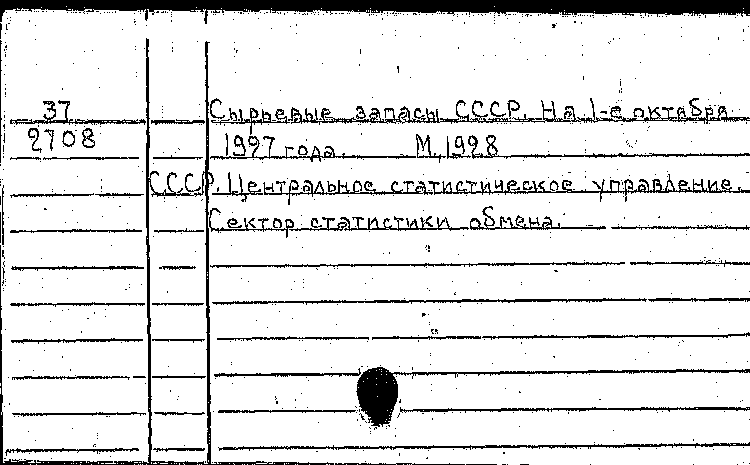 37
2708
Сырьевые запасы СССР. На 1-е октября
1927 года. М, 1928
СССР. Центральное статистическое управление.
Сектор статистики обмена.